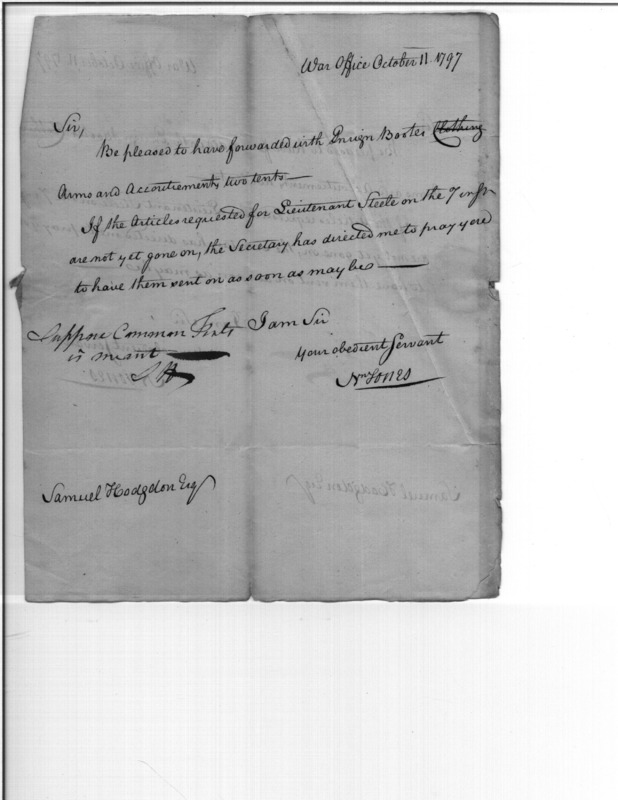 War Office October 11. 1797
Sir,
Be pleased to have forwarded with Ensign Bootes Clothing
Arms and Accoutrements, two tents —
If the Articles requested for Lieutenant Steele on the 7 inst
are not yet gone on, the Secretary has directed me to pray you
to have them sent on as soon as may be —
I am Sir
Your obedient Servant
Nn Jones
Suppose Common Tents
is meant —
SH
Samuel Hodgdon Esq